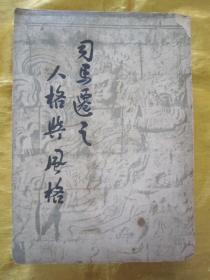 司马迁之
人格与风格